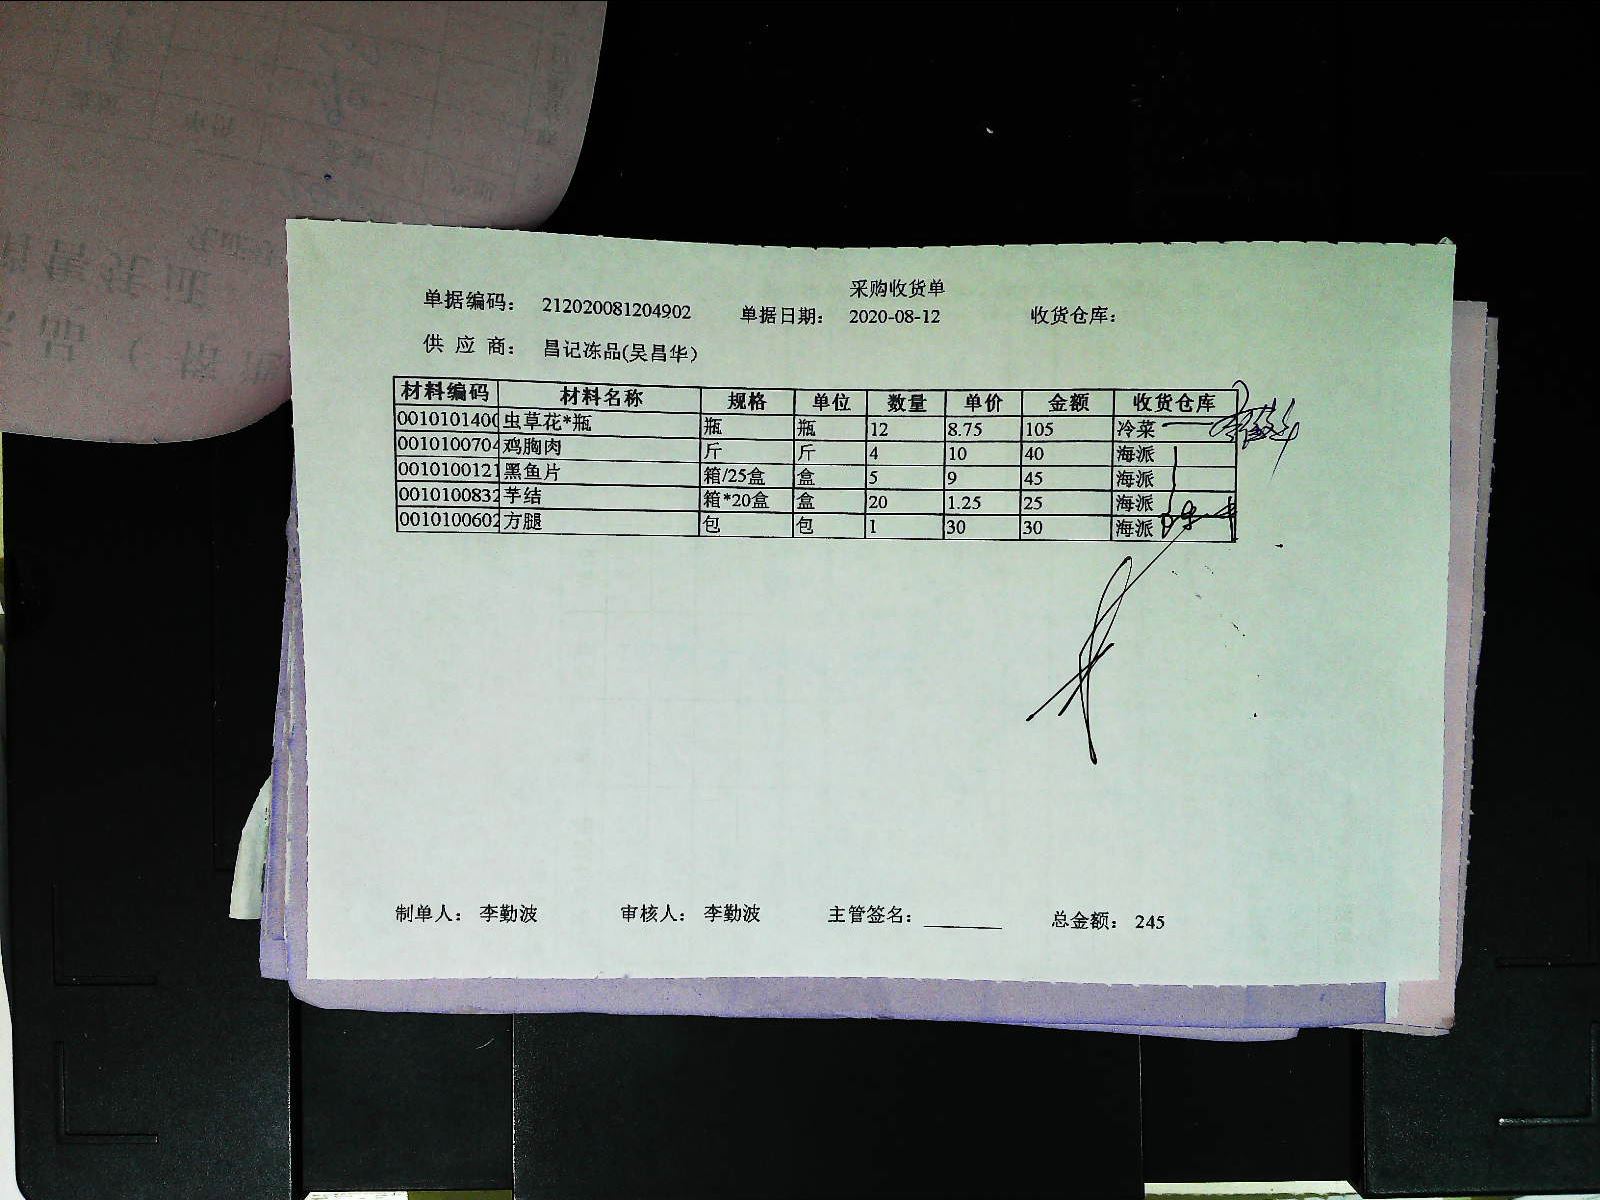 采购收货单
单据编码： 212020081204902 单据日期： 2020-08-12 收货仓库：
供 应 商： 昌记冻品(吴昌华）
材料编码 材料名称 规格 单位 数量 单价 金额 收货仓库
0010101400 虫草花*瓶 瓶 瓶 12 8.75 105 冷菜
0010100704 鸡胸肉 斤 斤 4 10 40 海派
0010100121 黑鱼片 箱/25盒 盒 5 9 45 海派
0010100832 芋结 箱*20盒 盒 20 1.25 25 海派
0010100602 方腿 包 包 1 30 30 海派
制单人： 李勤波 审核人： 李勤波 主管签名： 总金额： 245